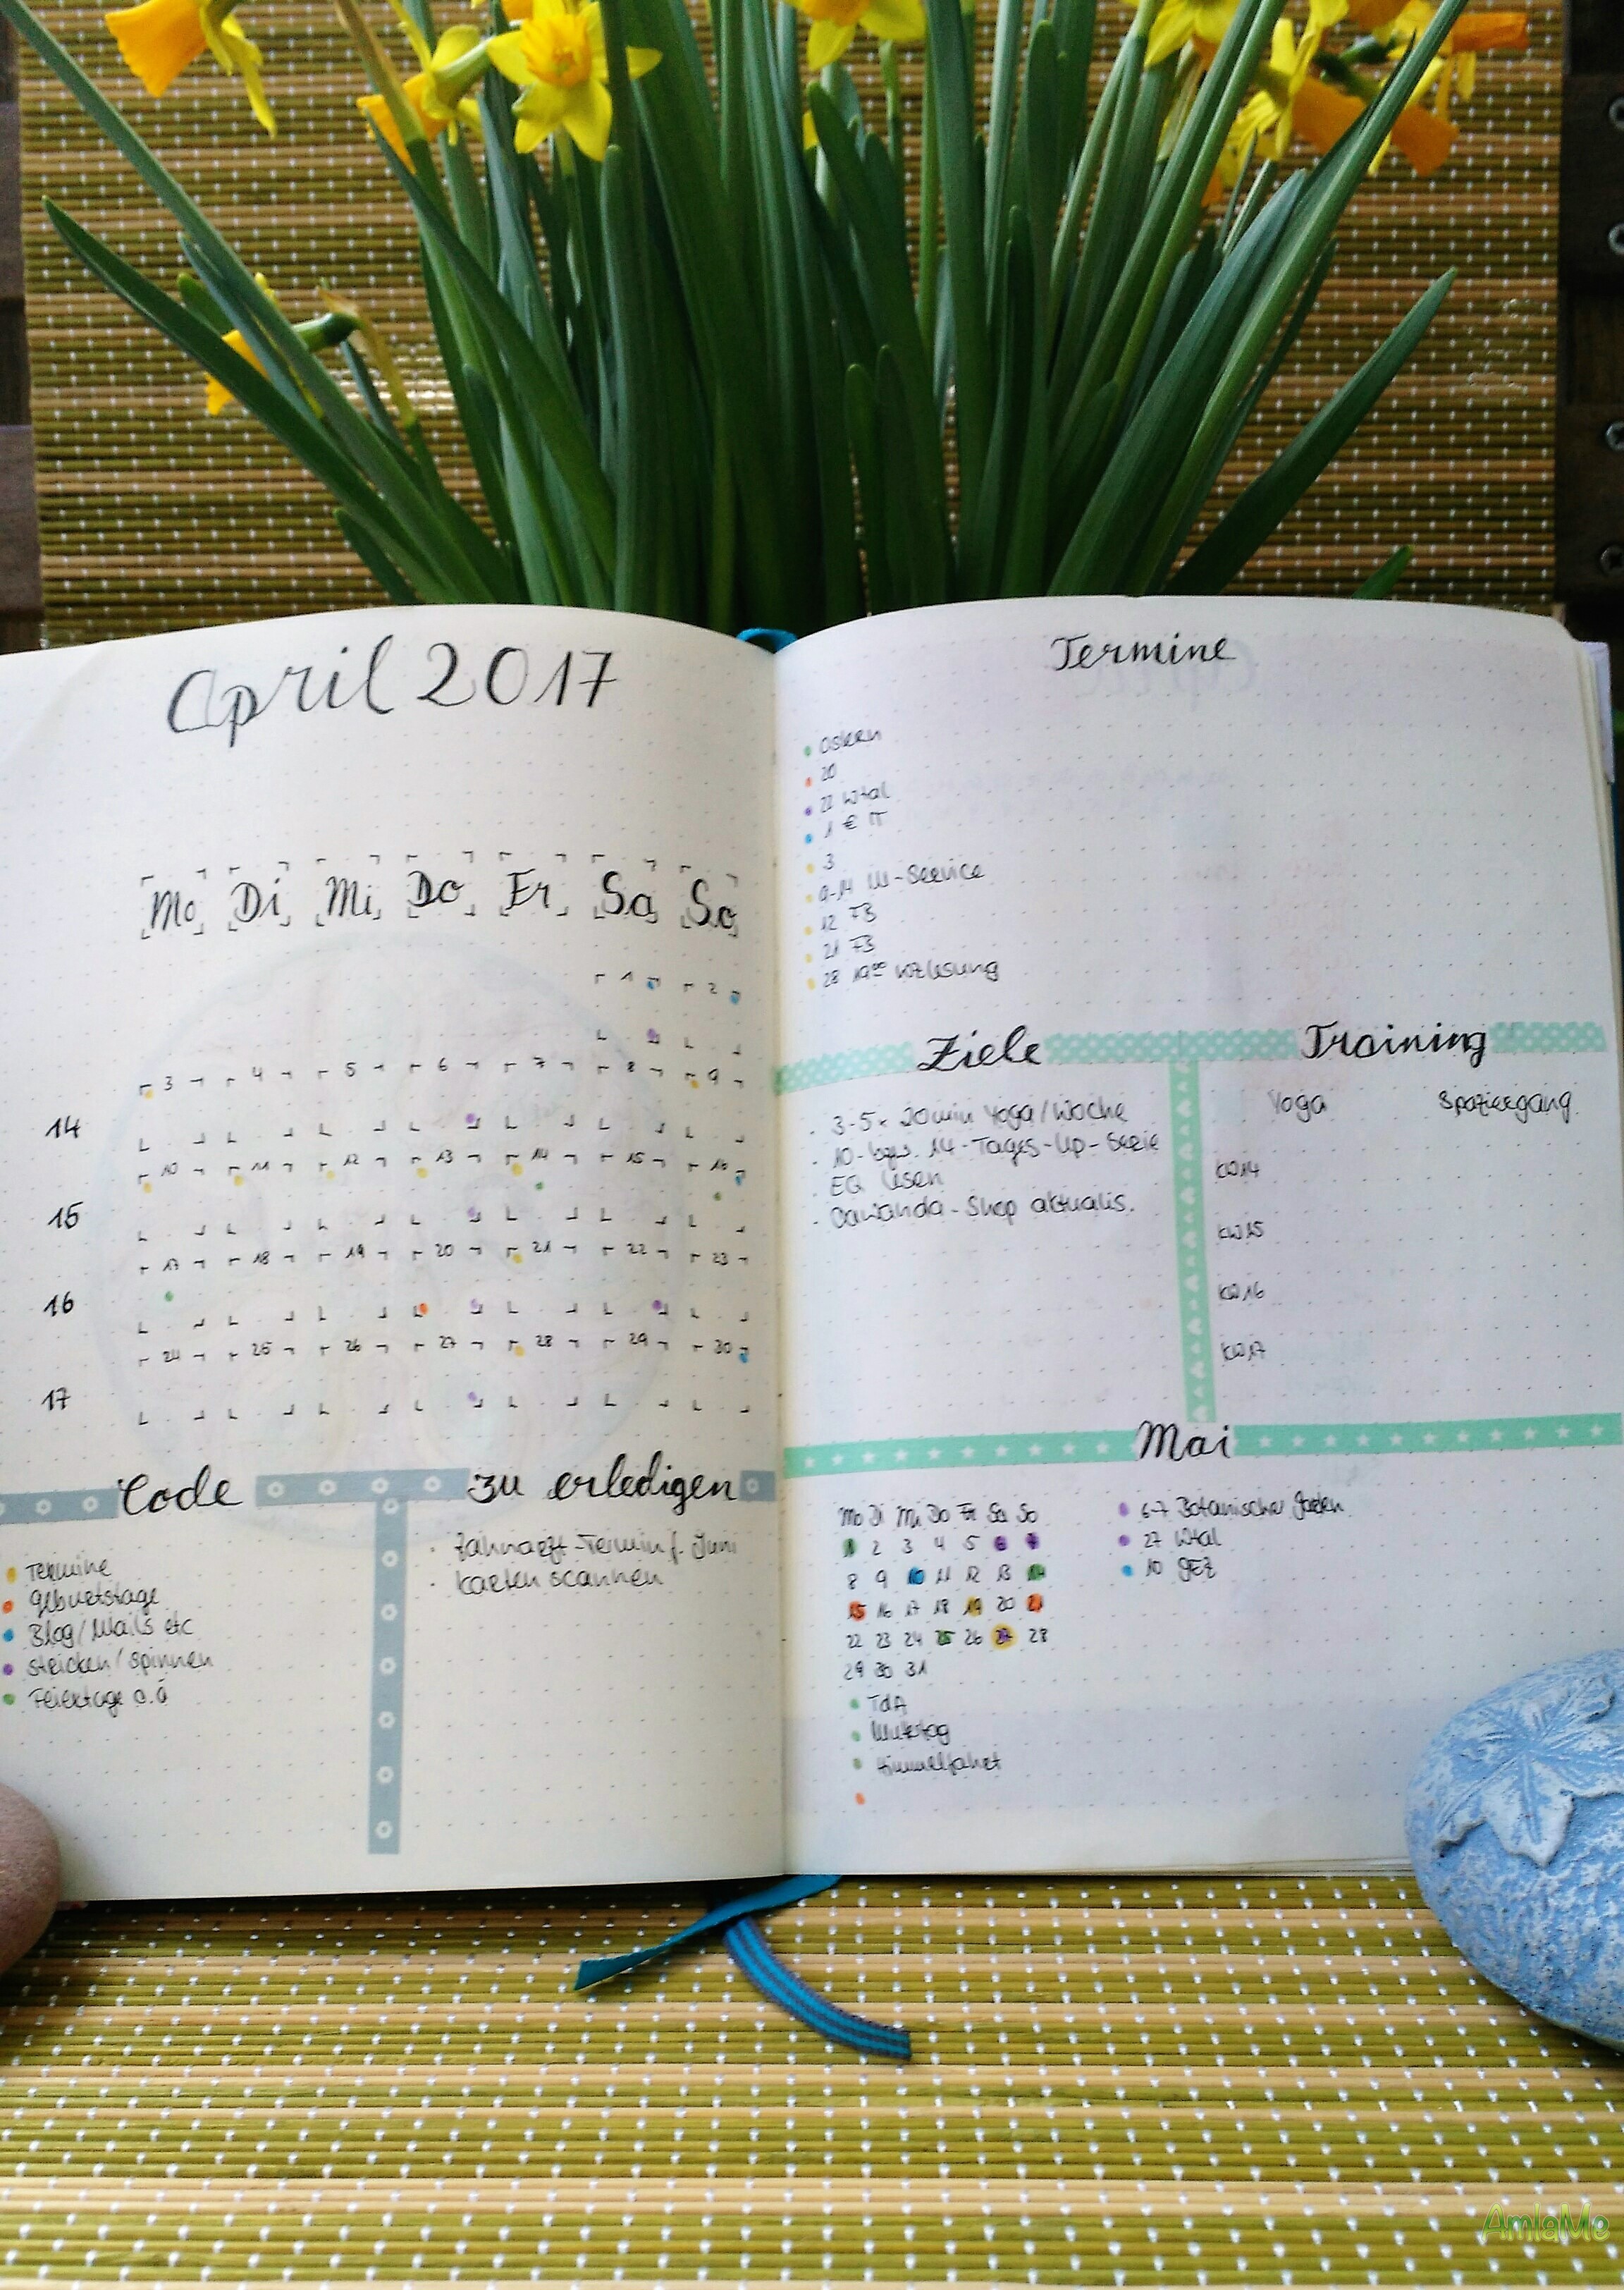 April 2017
Mo Di Mi Do Fr Sa So
1 2
3 4 5 6 7 8 9
14
10 11 12 13 14 15 16
15
17 18 19 20 21 22 23
16
24 25 26 27 28 29 30
17
Code
Termine
Geburtstage
Blog/Mails etc
stricken/spinnen
Feiertage o.ä
zu erledigen
Zahnarzt-Termin f. Juni
Karten scannen
Termine
Ostern
20
22 Wtal
1 € IT
3
9-14 -Service
12 FB
21 FB
28 19⁰⁰ Vorlesung
Ziele
3-5x 20min Yoga/Woche
10- bzw. 14-Tages-Up-Serie
EQ lesen
DaWanda-Shop aktualis.
Training
Yoga Spaziergang
KW14
KW15
KW16
KW17
Mai
Mo Di Mi Do Fr Sa So
1 2 3 4 5 6 7
8 9 10 11 12 13 14
15 16 17 18 19 20 21
22 23 24 25 26 27 28
29 30 31
TdA
Muttertag
Himmelfahrt
6-7 Botanischer Garten
27 Wtal
10 GEZ
AmlaMe